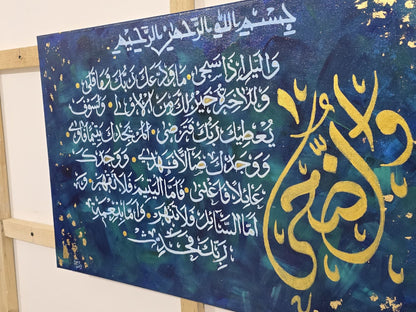 بسم الله الرحمن الرحيم
والضحى
والليل إذا سجى • ما ودعك ربك وما قلى •
وللآخرة خير لك من الأولى • ولسوف
يعطيك ربك فترضى • ألم يجدك يتيما فآوى •
ووجدك ضالا فهدى • ووجدك
عائلا فأغنى • فأما اليتيم فلا تقهر • و
أما السائل فلا تنهر • وأما بنعمة
ربك فحدث